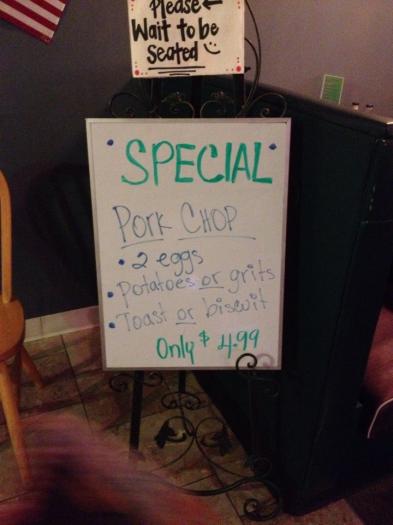 Please ←
Wait to be
Seated ☺
• SPECIAL •
Pork CHOP
• 2 eggs
• Potatoes or grits
• Toast or biscuit
Only $4.99